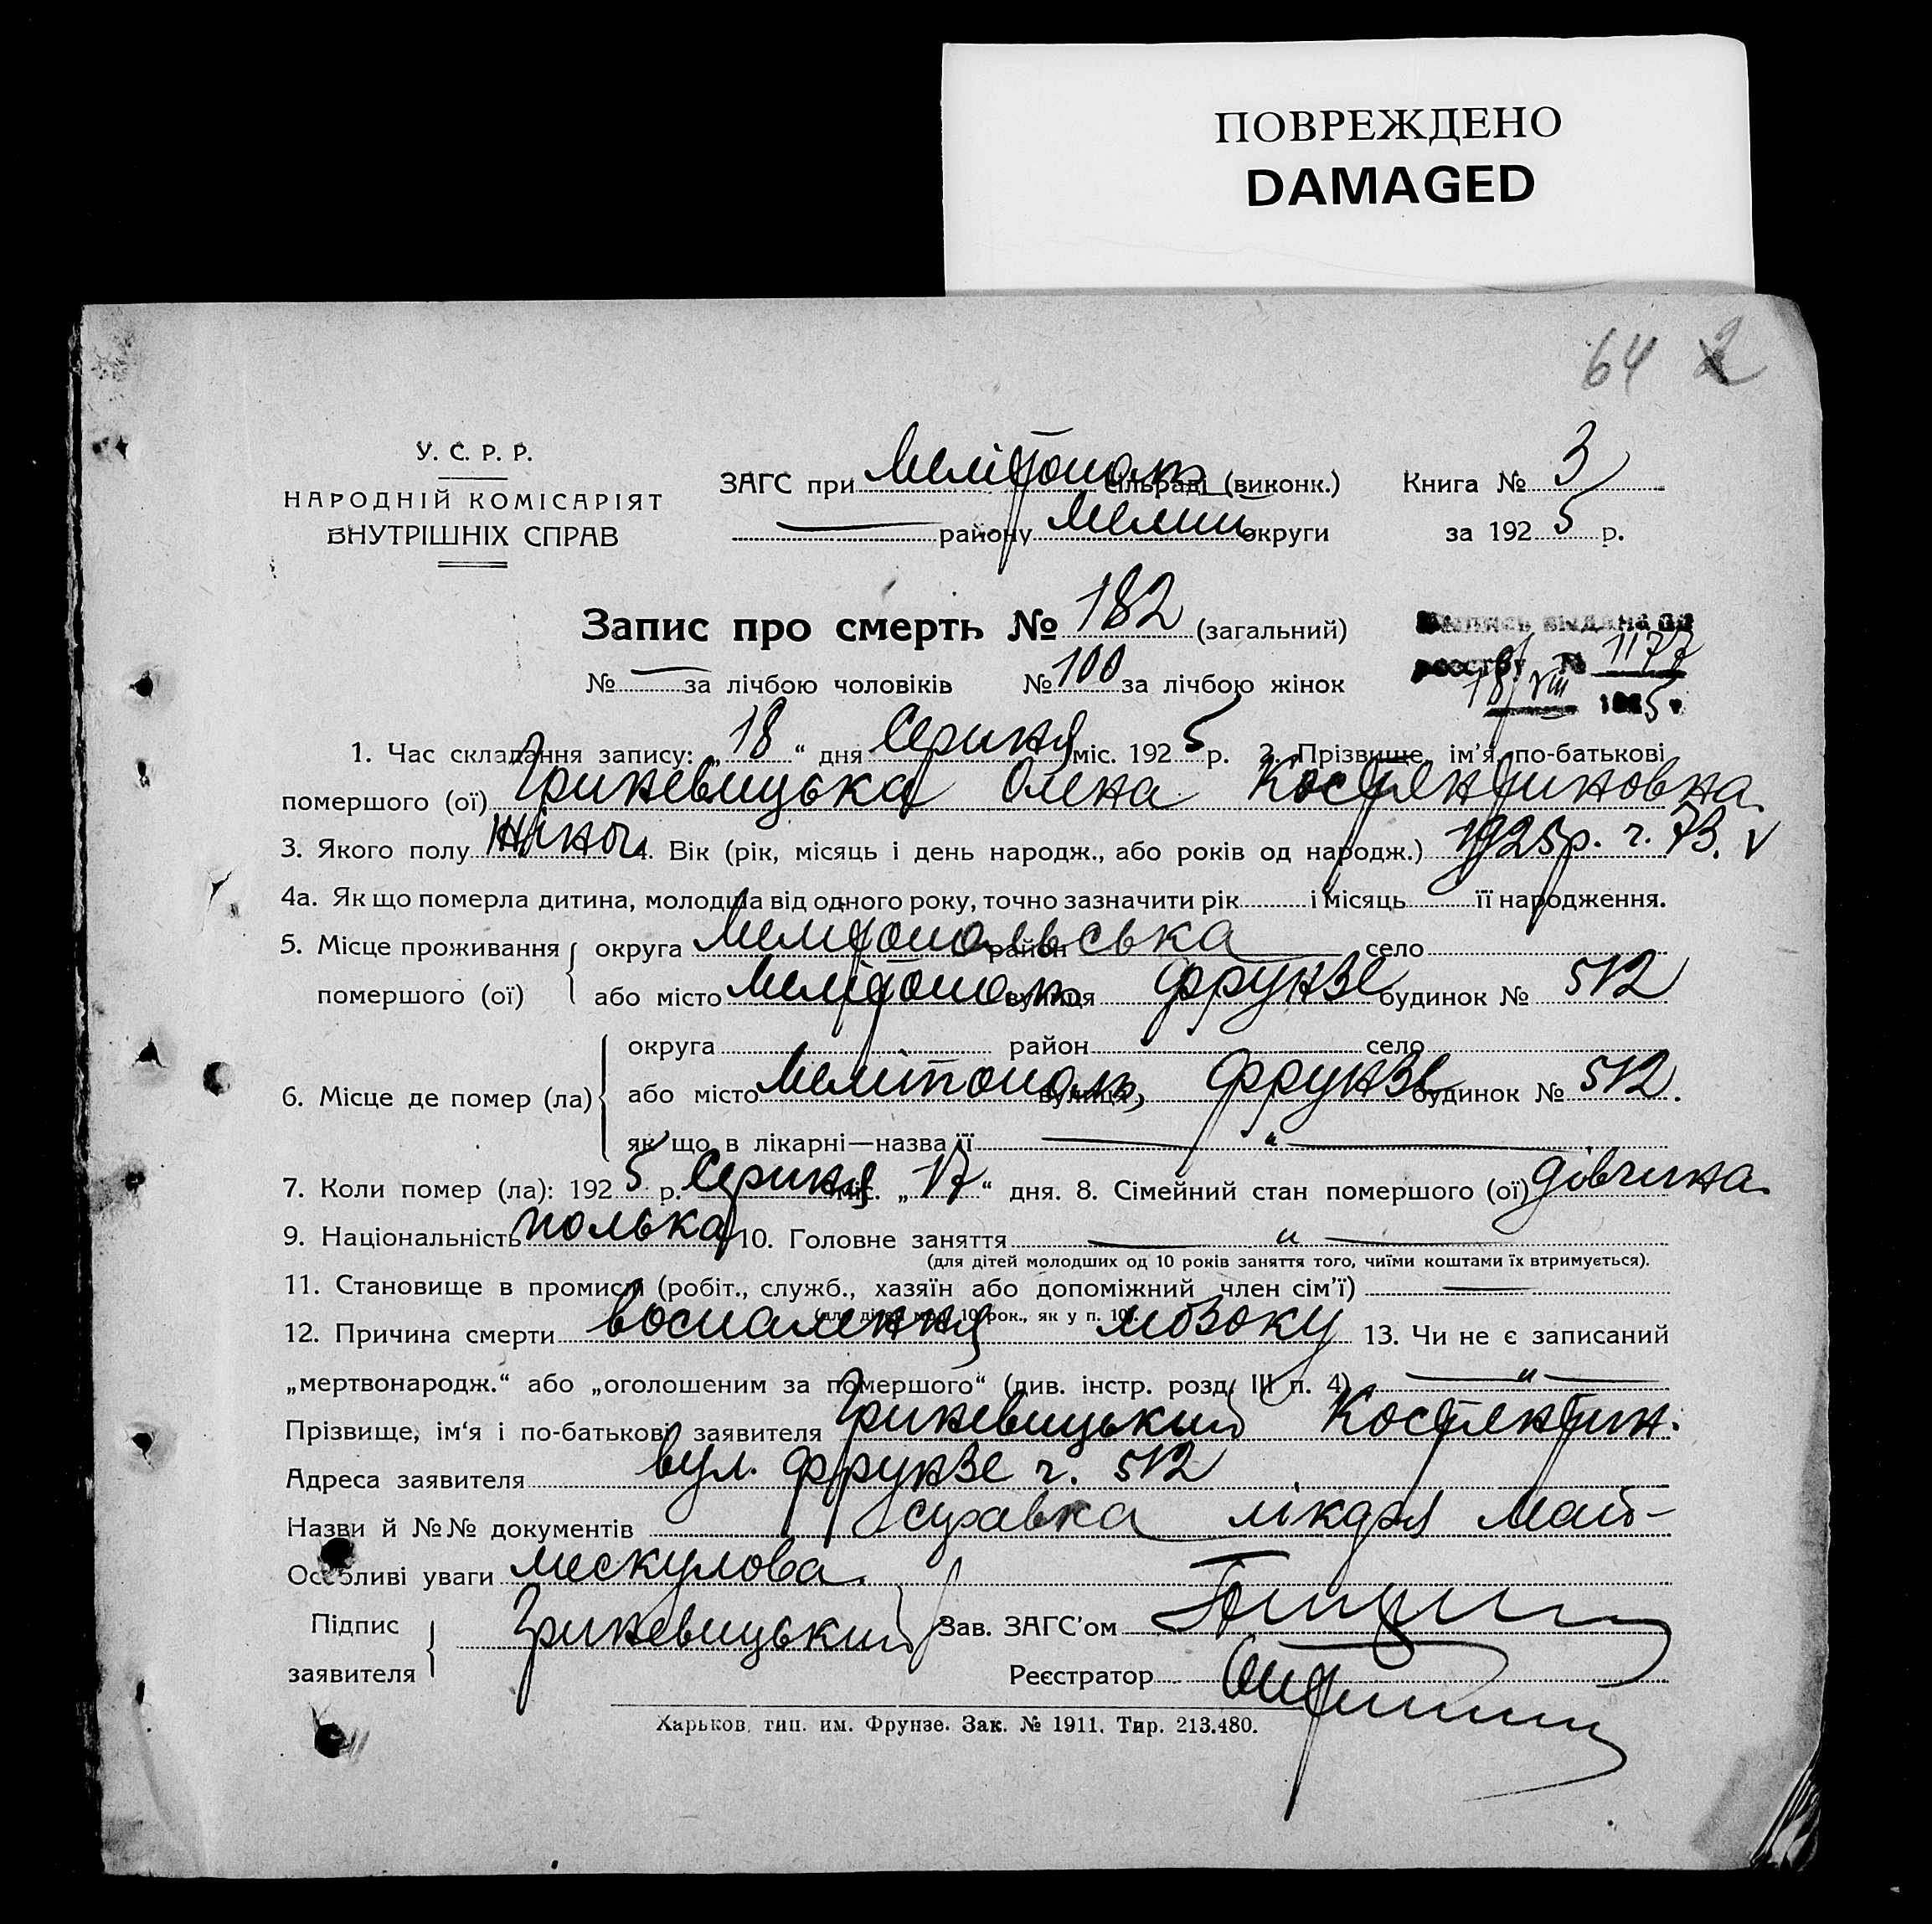 ПОВРЕЖДЕНО
DAMAGED
64 2
У. С. Р. Р.
НАРОДНІЙ КОМІСАРІЯТ
ВНУТРІШНІХ СПРАВ
ЗАГС при Мелітополь сільраді (виконк.)
району Мелит округи
Книга № 3
за 1925 р.
Запис про смерть № 182 (загальний)
№ — за лічбою чоловіків № 100 за лічбою жінок
выдана по
реестру № 1177
18/VIII 1925 г.
1. Час складання запису: „18“ дня Серпня міс. 1925 р. 2. Прізвище, ім'я, по-батькові
помершого (ої) Гриневицька Олена Костянтиновна
3. Якого полу жіноч. 4. Вік (рік, місяць і день народж., або років од народж.) 1925 р. г. 73. v
4а. Як що померла дитина, молодша від одного року, точно зазначити рік і місяць її народження.
5. Місце проживання помершого (ої) округа Мелітопольська район село
або місто Мелітополь вулиця Фрунзе будинок № 512
6. Місце де помер (ла) округа район село
або місто Мелітополь, вулиця Фрунзе будинок № 512.
як що в лікарні—назва її — „ —
7. Коли помер (ла): 1925 р. Серпня міс. „17“ дня. 8. Сімейний стан помершого (ої) дівчина
9. Національність полька 10. Головне заняття — „ —
(для дітей молодших од 10 років заняття того, чиїми коштами їх втримується).
11. Становище в промислі (робіт., служб., хазяїн або допоміжний член сім'ї) —
(для дітей мол. 10 рок., як у п. 10).
12. Причина смерти воспалення мозоку 13. Чи не є записаний
„мертвонародж.“ або „оголошеним за помершого“ (див. інстр. розд. III п. 4) — „ —
Прізвище, ім'я і по-батькові заявителя Гриневицький Костянтин.
Адреса заявителя вул. Фрунзе г. 512
Назви й №№ документів справка лікаря Май-
Особливі уваги мескулова.
Підпис заявителя Гриневицький Зав. ЗАГС'ом
Реєстратор
Харьков, тип. им. Фрунзе. Зак. № 1911. Тир. 213.480.